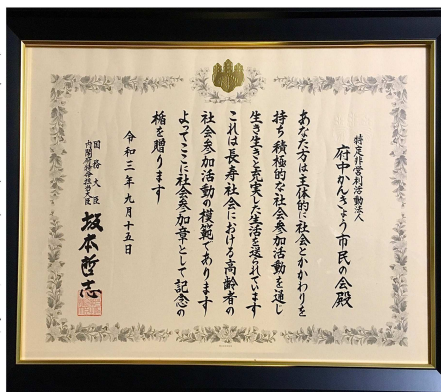 特定非営利活動法人
府中かんきょう市民の会殿
あなた方は主体的に社会とかかわりを
持ち積極的な社会参加活動を通し
生き生きと充実した生活を送られています
これは長寿社会における高齢者の
社会参加活動の模範であります
よってここに社会参加章として記念の
楯を贈ります
令和三年九月十五日
国務大臣
内閣府特命担当大臣
坂本哲志